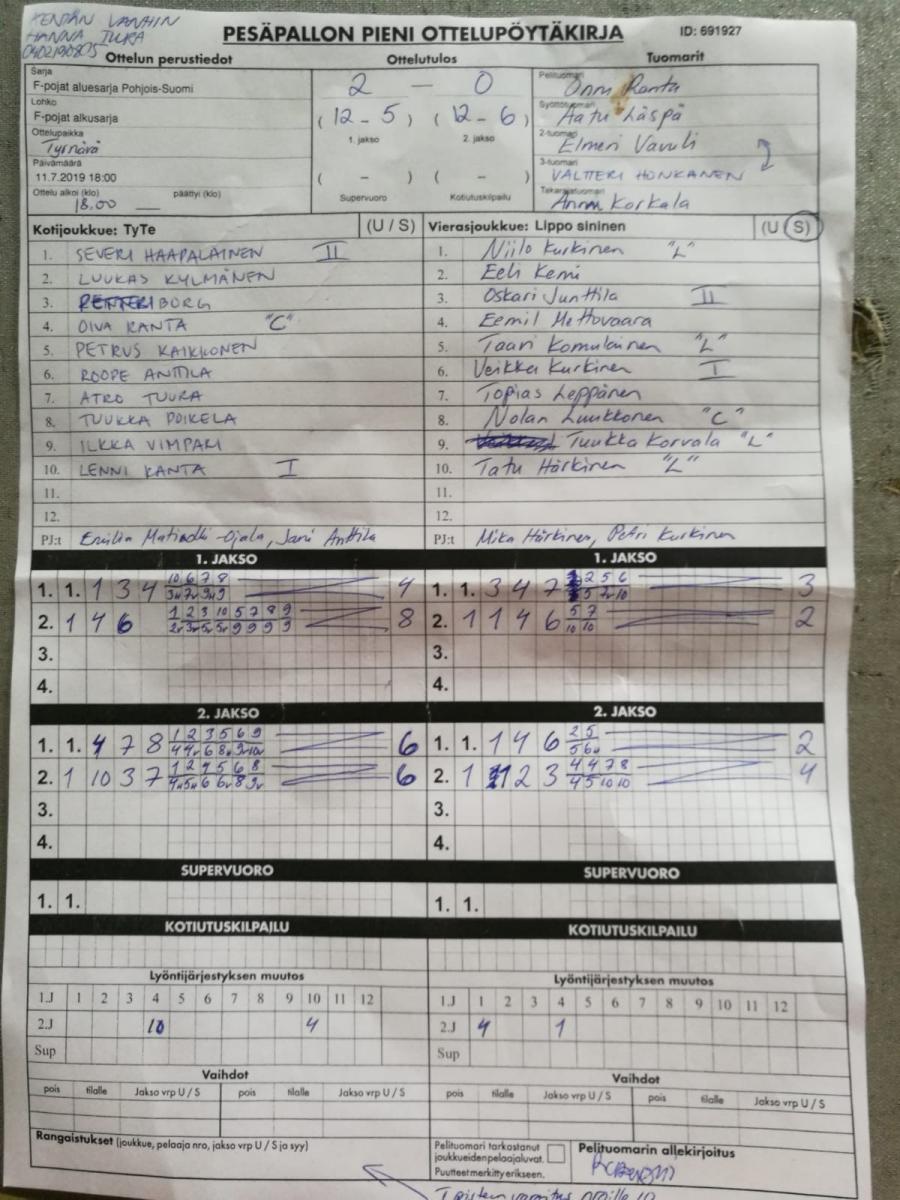 KENTÄN VANHIN
HANNA TUURA
PESÄPALLON PIENI OTTELUPÖYTÄKIRJA ID: 691927
Ottelun perustiedot Ottelutulos Tuomarit
Sarja
F-pojat aluesarja Pohjois-Suomi
Lohko
F-pojat alkusarja
Ottelupaikka
Tyrnävä
Päivämäärä
11.7.2019 18:00
Ottelu alkoi (klo) päättyi (klo)
18.00
2 — 0
(12 - 5) (12 - 6)
1. jakso 2. jakso
( - ) ( - )
Supervuoro Kotiutuskilpailu
Pelituomari
Onni Ranta
Syöttötuomari
Aatu Läspä
2-tuomari
Elmeri Vavuli
3-tuomari
VALTTERI HONKANEN
Takarajatuomari
Anni Korkala
Kotijoukkue: TyTe (U / S)
1. SEVERI HAAPALAINEN II
2. LUUKAS KYLMÄNEN
3. PETTERI BORG
4. OIVA RANTA "C"
5. PETRUS KAIKKONEN
6. ROOPE ANTTILA
7. ATRO TUURA
8. TUUKKA POIKELA
9. ILKKA VIMPARI
10. LENNI RANTA I
11.
12.
PJ:t Jani Anttila
Vierasjoukkue: Lippo sininen (U / S)
1. Niilo Kurkinen "L"
2. Eeli Kemi
3. Oskari Junttila II
4. Eemil Mettovaara
5. Taari Komulainen "L"
6. Veikka Kurkinen I
7. Topias Leppänen
8. Nolan Luukkonen "C"
9. Tuukka Korvala "L"
10. Tatu Härkinen "L"
11.
12.
PJ:t Mika Härkinen, Petri Kurkinen
1. JAKSO
1. 1. 1 3 4 10 6 7 8 4
2. 1 4 6 1 2 3 10 5 7 8 9 8
3.
4.
1. JAKSO
1. 1. 3 4 7 2 5 6 3
2. 1 1 4 6 5 7 10 10 2
3.
4.
2. JAKSO
1. 1. 4 7 8 1 2 3 5 6 9 6
2. 1 10 3 7 1 2 4 5 6 8 6
3.
4.
2. JAKSO
1. 1. 1 4 6 2 5 2
2. 1 2 3 4 4 7 8 4 5 10 10 4
3.
4.
SUPERVUORO SUPERVUORO
1. 1. 1. 1.
KOTIUTUSKILPAILU KOTIUTUSKILPAILU
Lyöntijärjestyksen muutos Lyöntijärjestyksen muutos
1.J 1 2 3 4 5 6 7 8 9 10 11 12
2.J 10 4
Sup
1.J 1 2 3 4 5 6 7 8 9 10 11 12
2.J 4 1
Sup
Vaihdot Vaihdot
pois tilalle Jakso vrp U / S pois tilalle Jakso vrp U / S
pois tilalle Jakso vrp U / S pois tilalle Jakso vrp U / S
Rangaistukset (joukkue, pelaaja nro, jakso vrp U / S ja syy)
Pelituomari tarkastanut
joukkueiden pelaajaluvat.
Puutteet merkitty erikseen.
Pelituomarin allekirjoitus